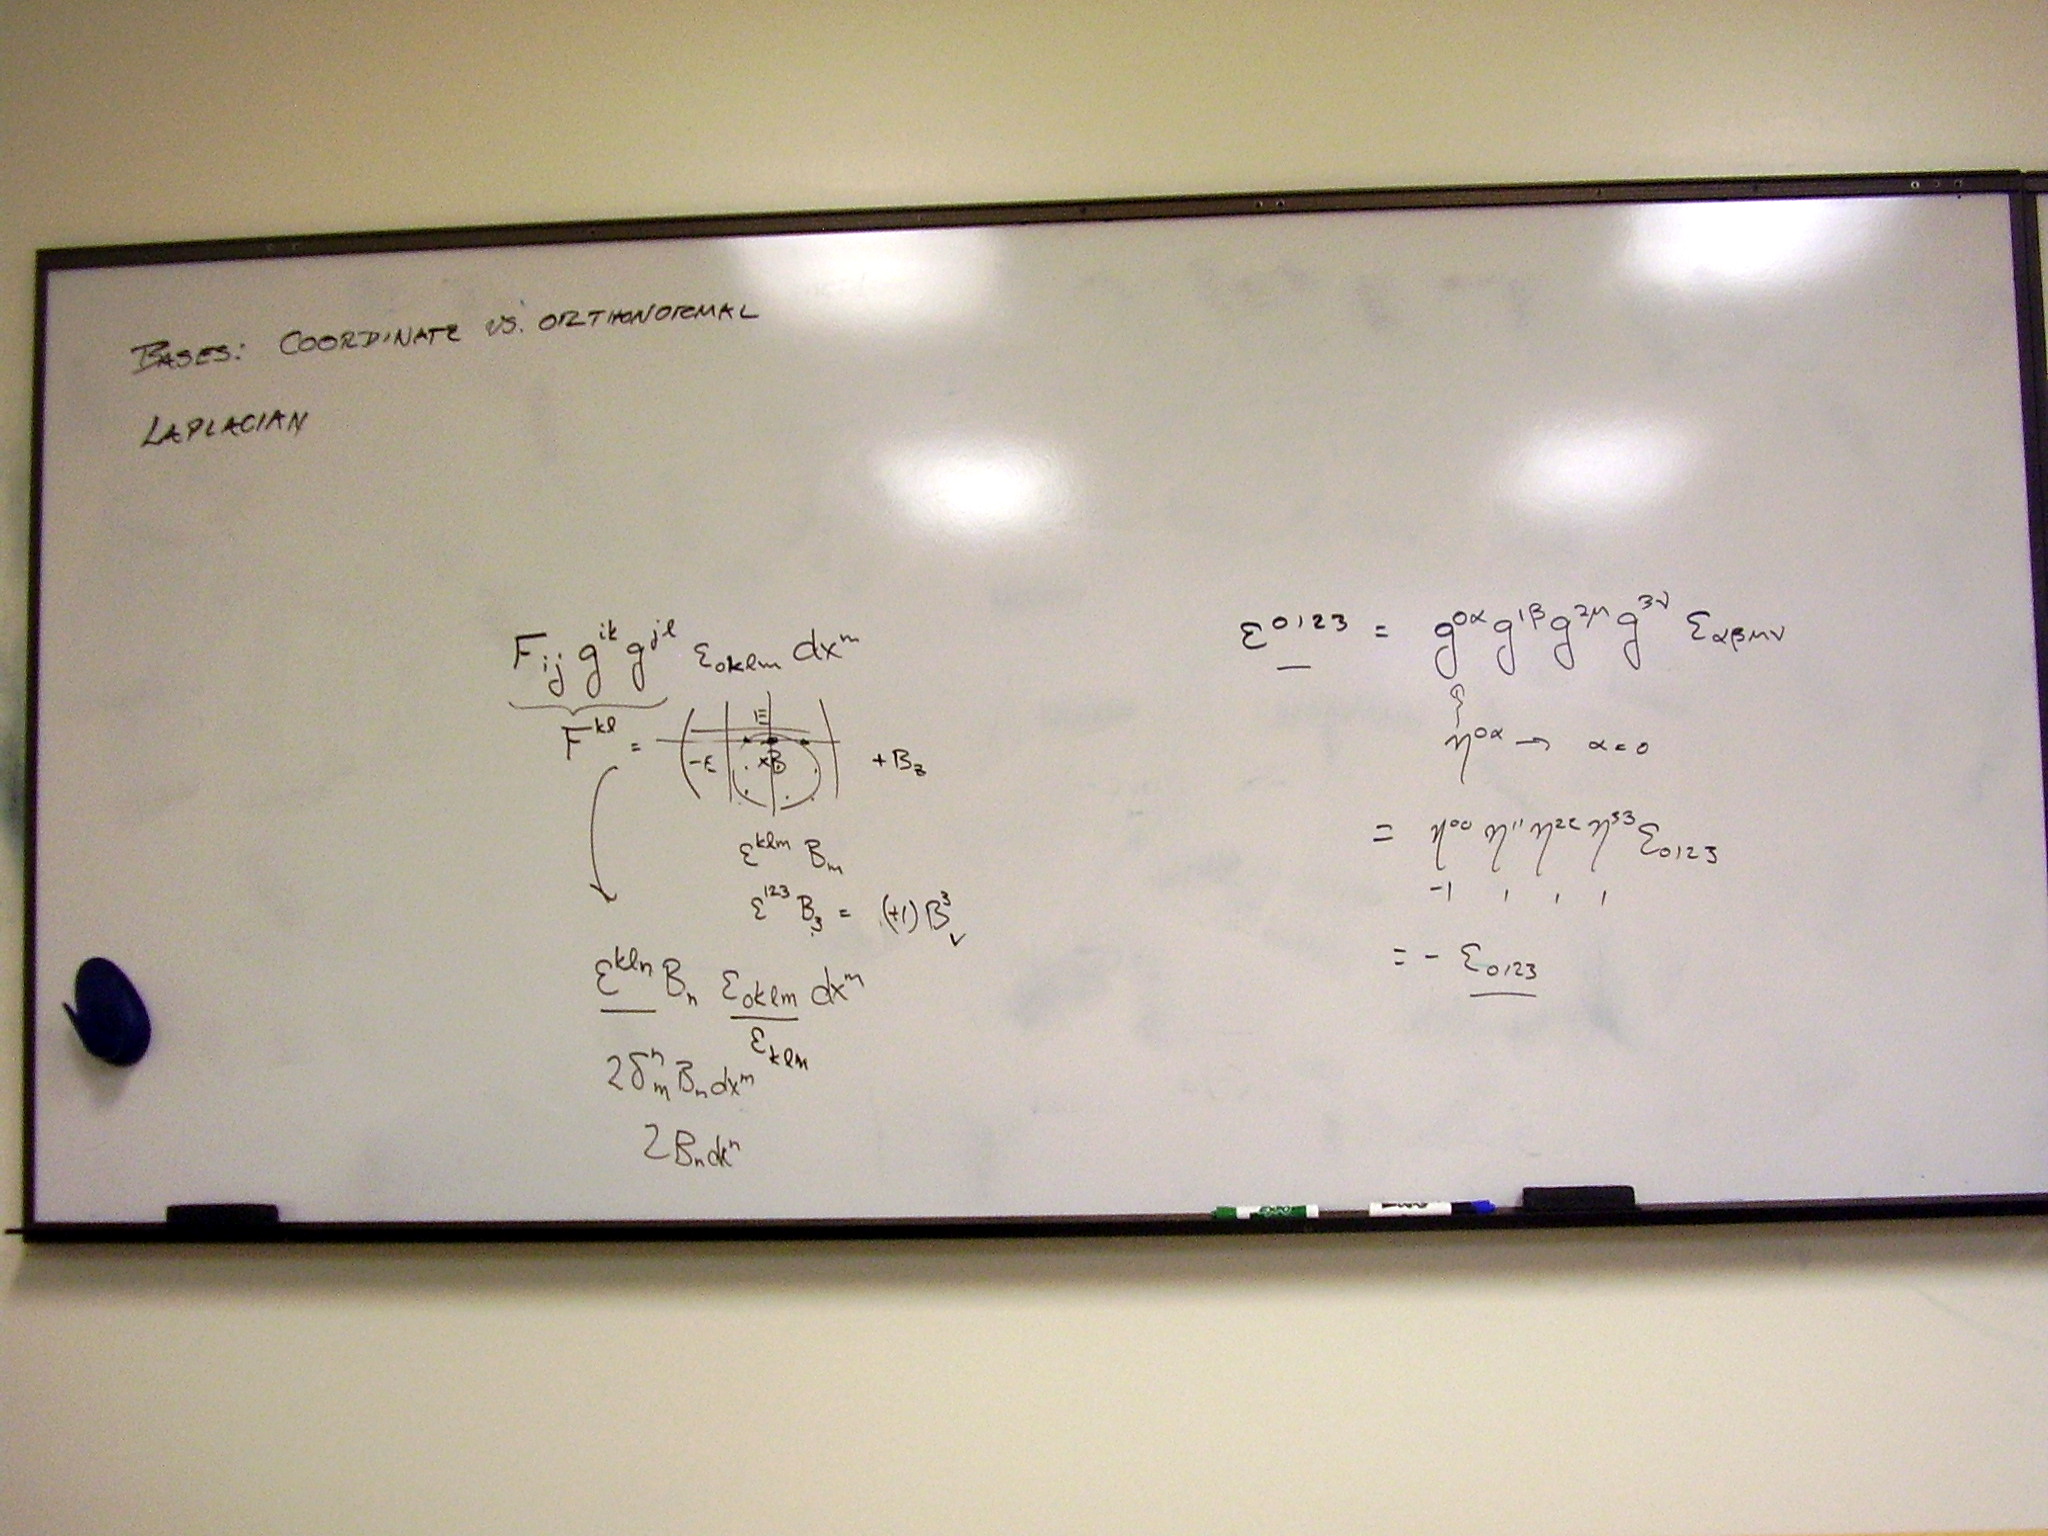 BASES: COORDINATE VS. ORTHONORMAL
LAPLACIAN
F_{ij} g^{ik} g^{jl} ε_{0klm} dx^m
F^{kl} = ( E -E B ) + B_3
ε^{klm} B_m
ε^{123} B_3 = (+1) B^3
ε^{kln} B_n ε_{0klm} dx^m
ε_{klm}
2δ^n_m B_n dx^m
2 B_n dx^n
ε^{0123} = g^{0α} g^{1β} g^{2μ} g^{3ν} ε_{αβμν}
η^{0α} → α=0
= η^{00} η^{11} η^{22} η^{33} ε_{0123}
-1 1 1 1
= - ε_{0123}